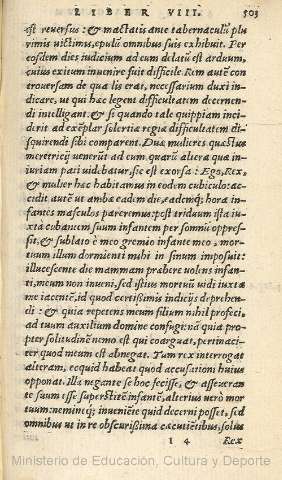 LIBER VIII. 503
est reuersus: & mactatis ante tabernaculũ plu
rimis uictimis, epulũ omnibus suis exhibuit. Per
eosdem dies iudicium ad eum delatũ est arduum,
cuius exitum inuenire fuit difficile. Rem autẽ con
trouersam de qua lis erat, necessarium duxi in-
dicare, ut qui hæc legent difficultatem decernen-
di intelligant: & si quando tale quippiam inci-
derit ad exẽplar solertiæ regiæ difficultatem dis-
quirendi sibi comparent. Duæ mulieres quæstus
meretricij uenerũt ad eum. quarũ altera quæ in-
iuriam pati uidebatur, sic est exorsa: Ego, Rex,
& mulier hæc habitamus in eodem cubiculo: ac-
cidit autẽ ut ambæ eadem die, eademq; hora in-
fantes masculos pareremus: post triduum ista iu-
xta cubantem suum infantem per somnũ oppres-
sit, & sublato è meo gremio infante meo, mor-
tuum illum dormienti mihi in sinum imposuit:
illucescente die mammam præbere uolens infan-
ti, meum non inueni, sed istius mortuũ uidi iuxta
me iacentẽ, id quod certissimis indicijs deprehen-
di: & quia repetens meum filium nihil profeci,
ad tuum auxilium domine confugi. nã quia pro-
pter solitudinẽ nemo est qui coarguat, pertinaci-
ter quod meum est abnegat. Tum rex interrogat
alteram, ecquid habeat quod accusationi huius
opponat. illa negante se hoc fecisse, & asseueran
te suum esse superstitẽ infantẽ, alterius uerò mor
tuum: nemineq; inueniẽte quid decerni posset, sed
omnibus ut in re obscurissima cæcutiẽtibus, solus
i 4 Rex
Ministerio de Educación, Cultura y Deporte